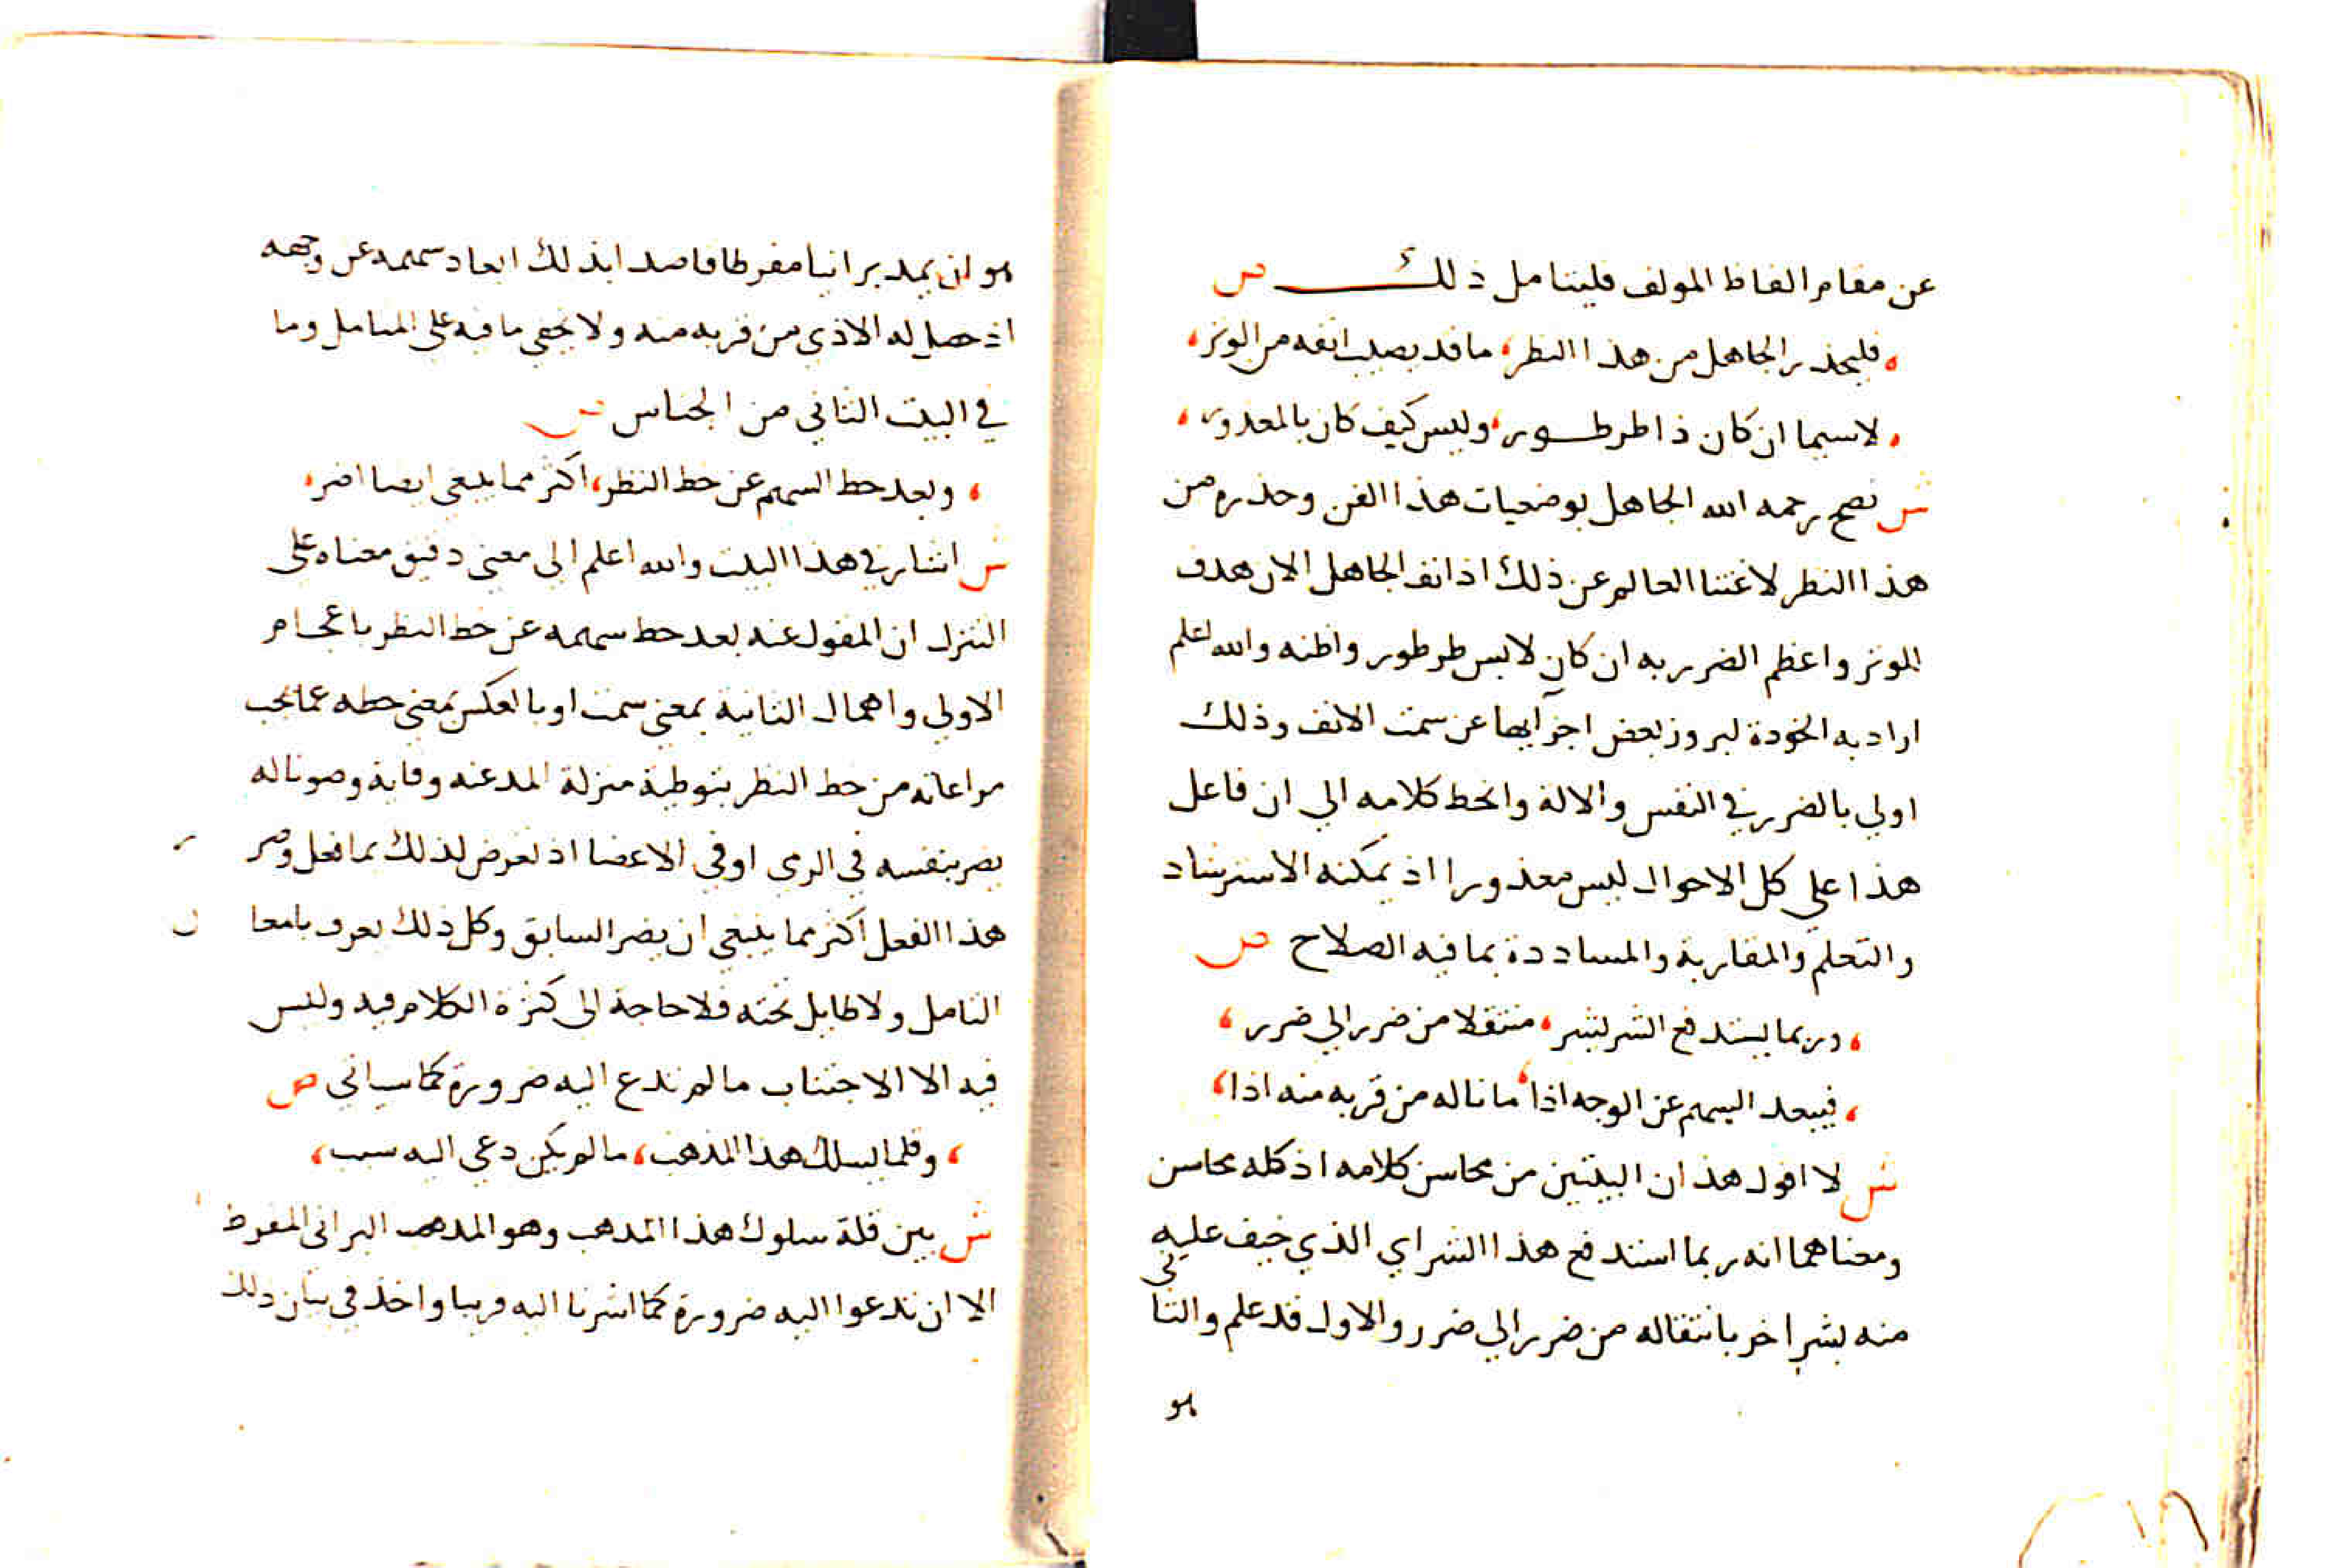 عن مقام الفاظ المولف فليتامل ذلك ص
، فليحذر الجاهل من هذا النظر، ما قد يصيب انفه من الوتر،
، لاسيما ان كان ذا طرطور، وليس كيف كان بالمعذور،
ش نصح رحمه الله الجاهل بوضعيات هذا الفن وحذره من
هذا النظر لاغتنا العالم عن ذلك اذ انف الجاهل الان هدف
للوتر واعظم الضرر به ان كان لابس طرطور واظنه والله اعلم
اراد به الخودة لبروز بعض اجزايها عن سمت الانف وذلك
اولي بالضرر في النفس والالة وانحط كلامه الي ان فاعل
هذا علي كل الاحوال ليس معذورا اذ يمكنه الاسترشاد
والتعلم والمقاربة والمساددة بما فيه الصلاح ص
، وربما يستدفع الشر بشر، منتقلا من ضرر الي ضرر،
، فيبعد السهم عن الوجه اذا، ما ناله من قربه منه اذا،
ش لا اقول هذان البيتين من محاسن كلامه اذ كله محاسن
ومعناهما انه ربما استدفع هذا الشر اي الذي خيف عليه
منه بشر اخر بانتقاله من ضرر الي ضرر والاول قد علم والثاني
هو
هو ان يمد برانيا مفرطا قاصدا بذلك ابعاد سهمه عن وجهه
اذ حصل له الاذي من قربه منه ولا يخفي ما فيه علي المتامل وما
في البيت الثاني من الجناس ص
، وبعد حط السهم عن خط النظر، اكثر مما ينبغي ايضا اضر،
ش اشار في هذا البيت والله اعلم الي معني دقيق معناه علي
التنزل ان المفول عنه بعد حط سهمه عن خط النظر باعجام
الاولي واهمال الثانية بمعني سمت او بالعكس بمعني حطه عما يجب
مراعاته من حط النظر بتوطية منزلة المد عنه وقاية وصونا له
يضر بنفسه في الرمي او في الاعضا اذ تعرض لذلك بما فعل وضر
هذا الفعل اكثر مما ينبغي ان يضر السابق وكل ذلك يعرف بامعان
التامل ولا طايل تحته فلا حاجة الي كثرة الكلام فيه وليس
فيه الا الاجتناب ما لم تدع اليه ضرورة كما سياتي ص
، وقلما يسلك هذا المذهب، ما لم يكن دعي اليه سبب،
ش بين قلة سلوك هذا المذهب وهو المذهب البراني المفرط
الا ان تدعوا اليه ضرورة كما اشرنا اليه قريبا واخذ في بيان ذلك